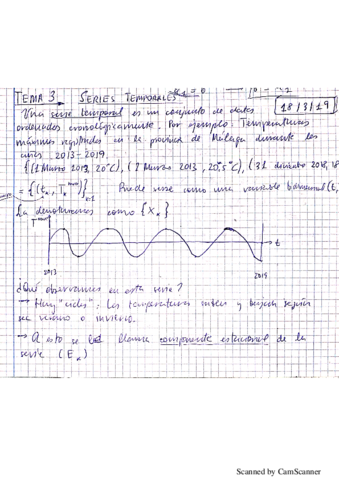 TEMA 3. SERIES TEMPORALES
18/3/19
Una serie temporal es un conjunto de datos
ordenados cronológicamente. Por ejemplo: Temperaturas
máximas registradas en la provincia de Málaga durante los
años 2013-2019.
{(1 Marzo 2013, 20°C), (2 Marzo 2013, 20,5°C), (31 diciembre 2018, 18
Puede verse como una variable bidimensional (t,
La denotaremos como {X
t
2013 2019
¿Qué observamos en esta serie?
→ Hay "ciclos": Las temperaturas suben y bajan según
sea verano o invierno.
→ A esto se le llama componente estacional de la
serie (E
Scanned by CamScanner